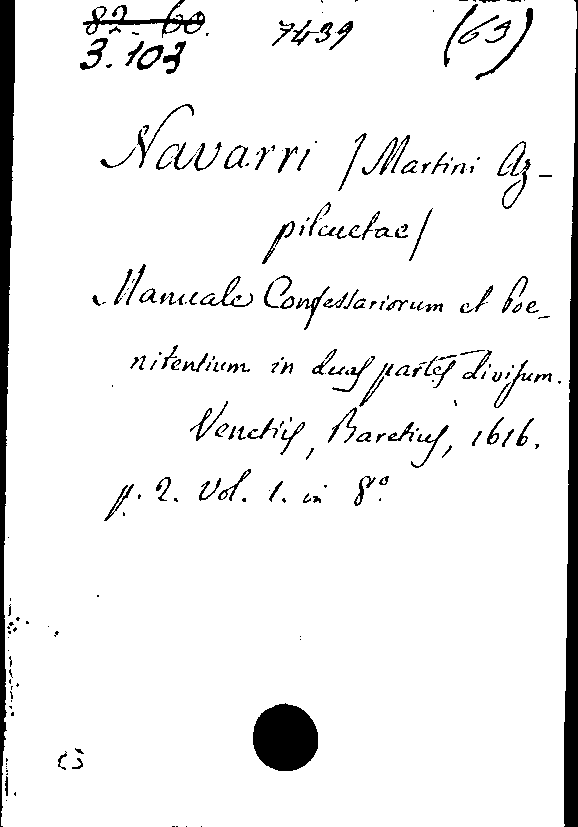 82-60.
3.103 7439 (63)
Navarri /Martini Az-
pilcuetae/
Manuale Confessariorum et Poe-
nitentium in duas partes divisum.
Venetiis, Baretius, 1616.
p. 2. Vol. 1. in 8°